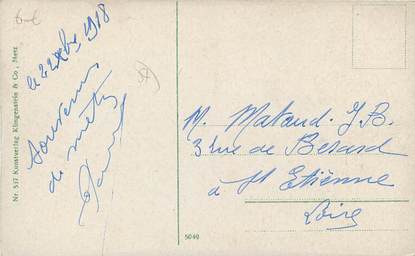 1918
Souvenir
de metz
Nr. 537 Kunstverlag Klingenstein & Co., Metz
M. Mataud. J. B.
3 rue de Berard
à St Etienne
Loire
5040